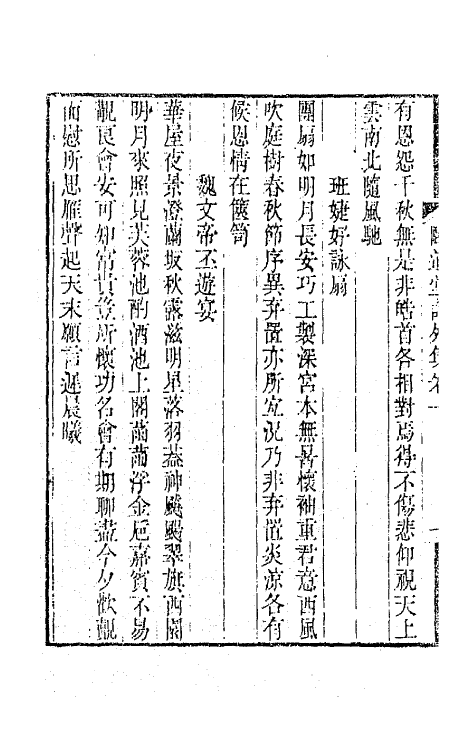 有恩怨千秋無是非皓首各相對焉得不傷悲仰視天上
雲南北隨風馳
班婕妤詠扇
團扇如明月長安巧工製深宮本無暑懷袖重君意西風
吹庭樹春秋節序異弃置亦所宜況乃非弃置炎涼各有
候恩情在篋笥
魏文帝丕遊宴
華屋夜景澄蘭坂秋露滋明星落羽蓋神飈颺翠旗西園
明月來照見芙蓉池酌酒池上閣菡萏浮金巵嘉賓不易
覯良會安可知富貴豈所懷功名會有期聊盡今夕歡覯
面慰所思雁聲起天末願言遲晨曦